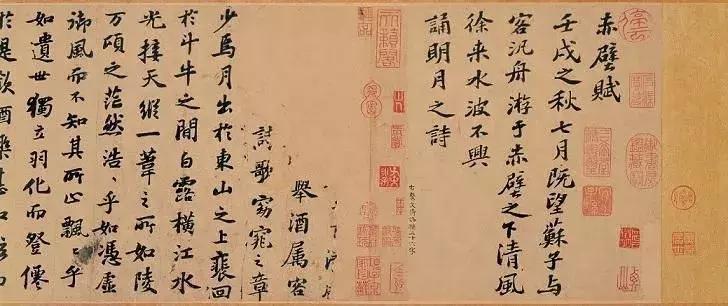 赤壁賦
壬戌之秋七月既望蘇子与
客汎舟游于赤壁之下清風
徐来水波不興
誦明月之詩
文待詔補三十六字
舉酒属客
詩歌窈窕之章
少焉月出於東山之上裵回
於斗牛之間白露横江水
光接天縱一葦之所如陵
万頃之茫然浩〻乎如憑虚
御風而不知其所止飄〻乎
如遺世獨立羽化而登僊
於是飲酒樂甚